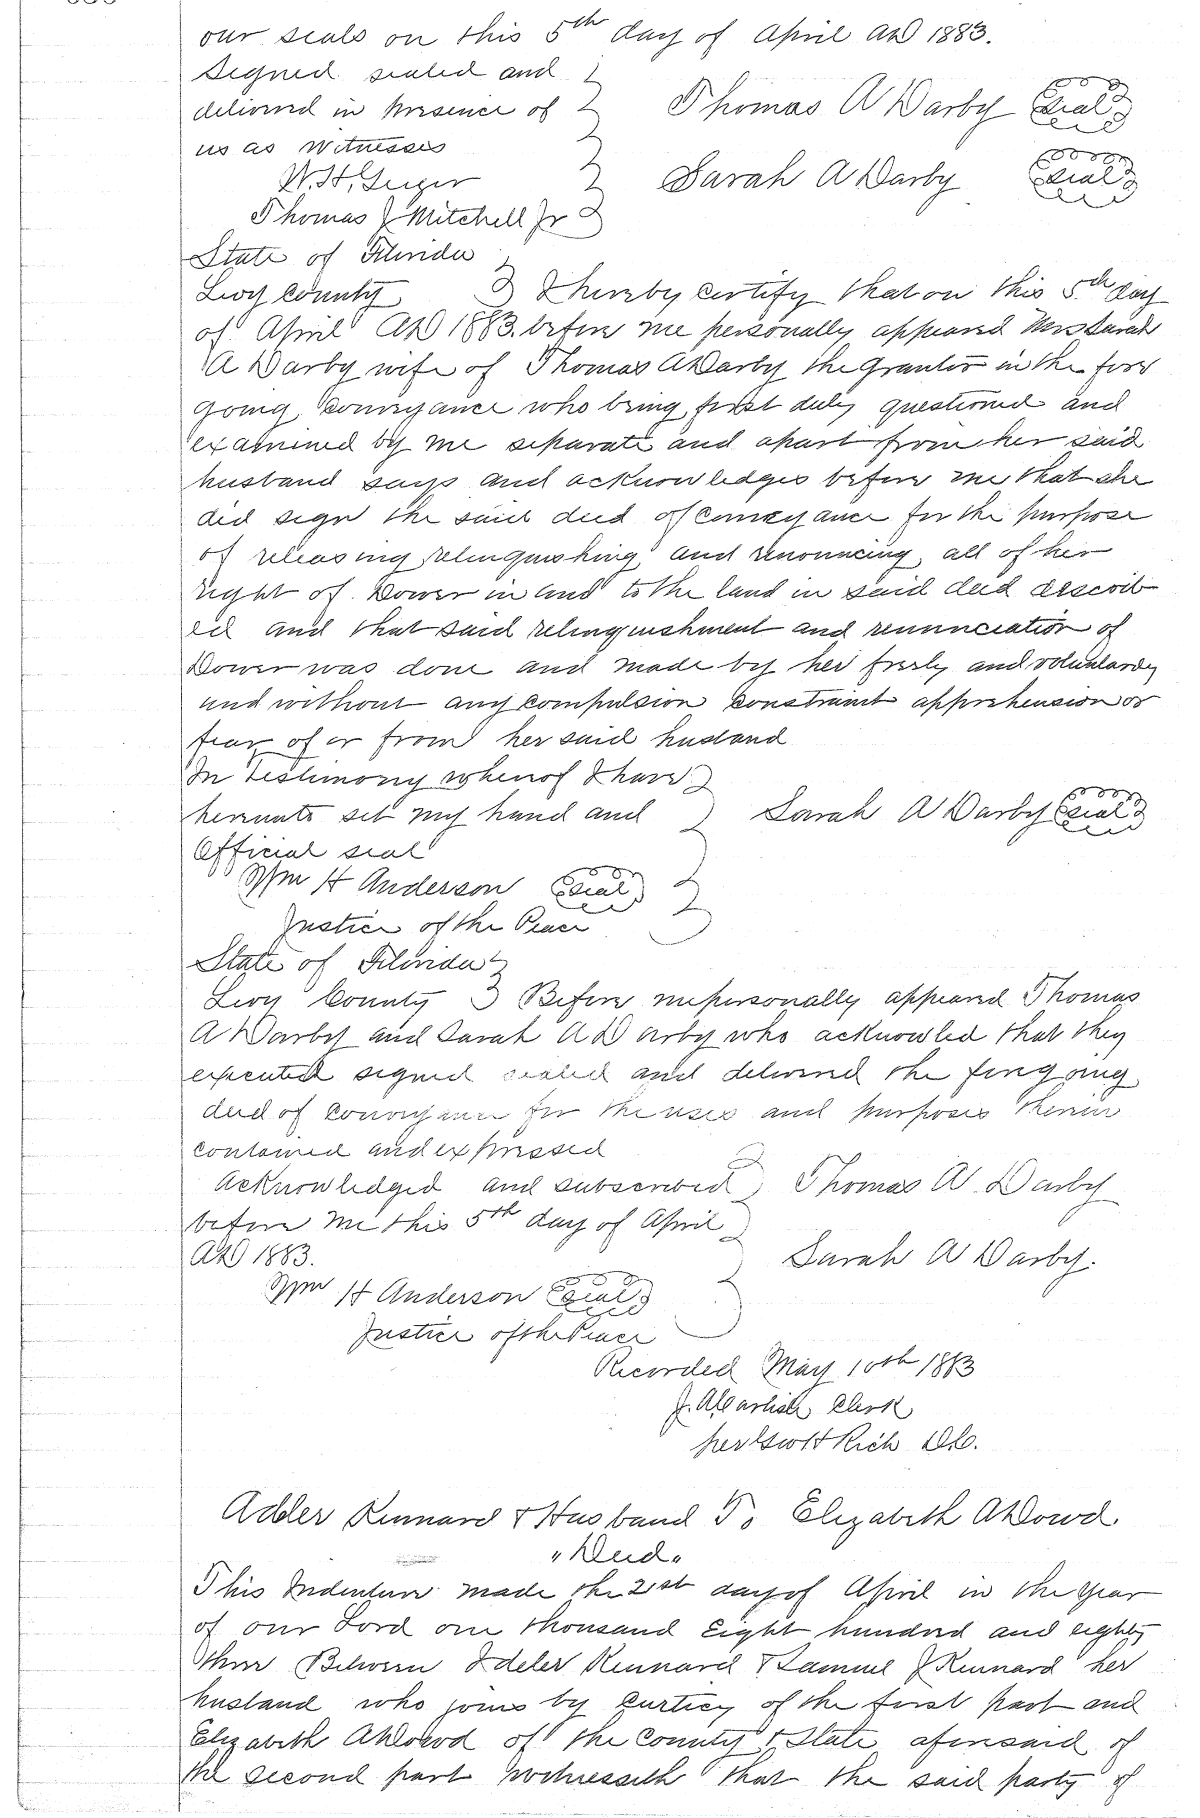 our seals on this 5th day of April AD 1883.
Signed sealed and
delivered in presence of
us as witnesses
Thomas A Darby Seal
Sarah A Darby Seal
W. H. Geiger
Thomas J Mitchell Jr
State of Florida
Levy County I hereby certify that on this 5th day
of April AD 1883. before me personally appeared Mrs Sarah
A Darby wife of Thomas A Darby the Grantor in the fore
going Conveyance who being first duly questioned and
examined by me separate and apart from her said
husband says and acknowledges before me that she
did sign the said deed of Conveyance for the purpose
of releasing relinquishing and renouncing all of her
right of Dower in and to the land in said deed describ
ed and that said relinquishment and renunciation of
Dower was done and made by her freely and voluntarily
and without any compulsion constraint apprehension or
fear of or from her said husband
In Testimony whereof I have
hereunto set my hand and Sarah A Darby Seal
Official seal
Wm H Anderson Seal
Justice of the Peace
State of Florida
Levy County Before me personally appeared Thomas
A Darby and Sarah A Darby who acknowled that they
executed signed sealed and delivered the foregoing
deed of conveyance for the uses and purposes therein
contained and expressed
Acknowledged and subscribed Thomas A. Darby
before me this 5th day of April
AD 1883. Sarah A Darby.
Wm H Anderson Seal
Justice of the Peace
Recorded May 10th 1883
J. A Carlisle Clerk
per Rich D.C.
Adeler Kinnard & Husband To Elizabeth A Dowd.
"Deed"
This Indenture made the 21st day of April in the Year
of our Lord one thousand Eight hundred and eighty
three Between Adeler Kinnard & Samuel J Kinnard her
husband who joins by Curticy of the first part and
Elizabeth A Dowd of the County & State aforesaid of
the second part witnesseth that the said party of